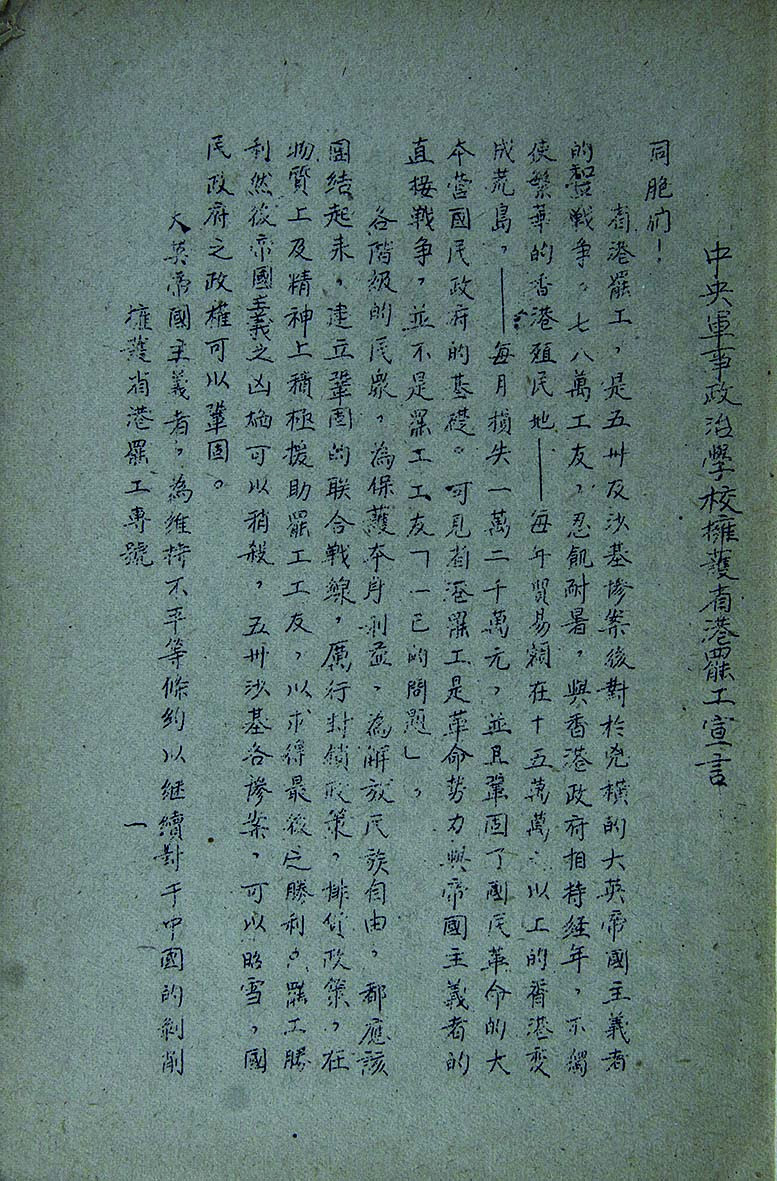 中央軍事政治學校擁護省港罷工宣言
同胞们！
省港罷工，是五卅及沙基慘案後對於兇橫的大英帝國主義者
的戰爭。七八萬工友，忍飢耐暑，與香港政府相持經年，不獨
使繁華的香港殖民地——每年貿易額在十五萬萬以上的香港变
成荒島，——每月損失一萬二千萬元，並且鞏固了國民革命的大
本营國民政府的基礎。可見省港罷工是革命势力與帝國主義者的
直接戰争，並不是罷工工友「一己的問題」。
各階級的民衆，為保護本身利益，為解放民族自由，都應該
團结起来，建立鞏固的联合戰線，厲行封鎖政策，排货政策，在
物質上及精神上積極援助罷工工友，以求得最後之勝利。罷工勝
利然後帝國主義之凶焰可以稍殺，五卅沙基各慘案，可以昭雪，國
民政府之政權可以鞏固。
大英帝國主義者，為维持不平等條约以继續對于中國的剝削
擁護省港罷工專號
一